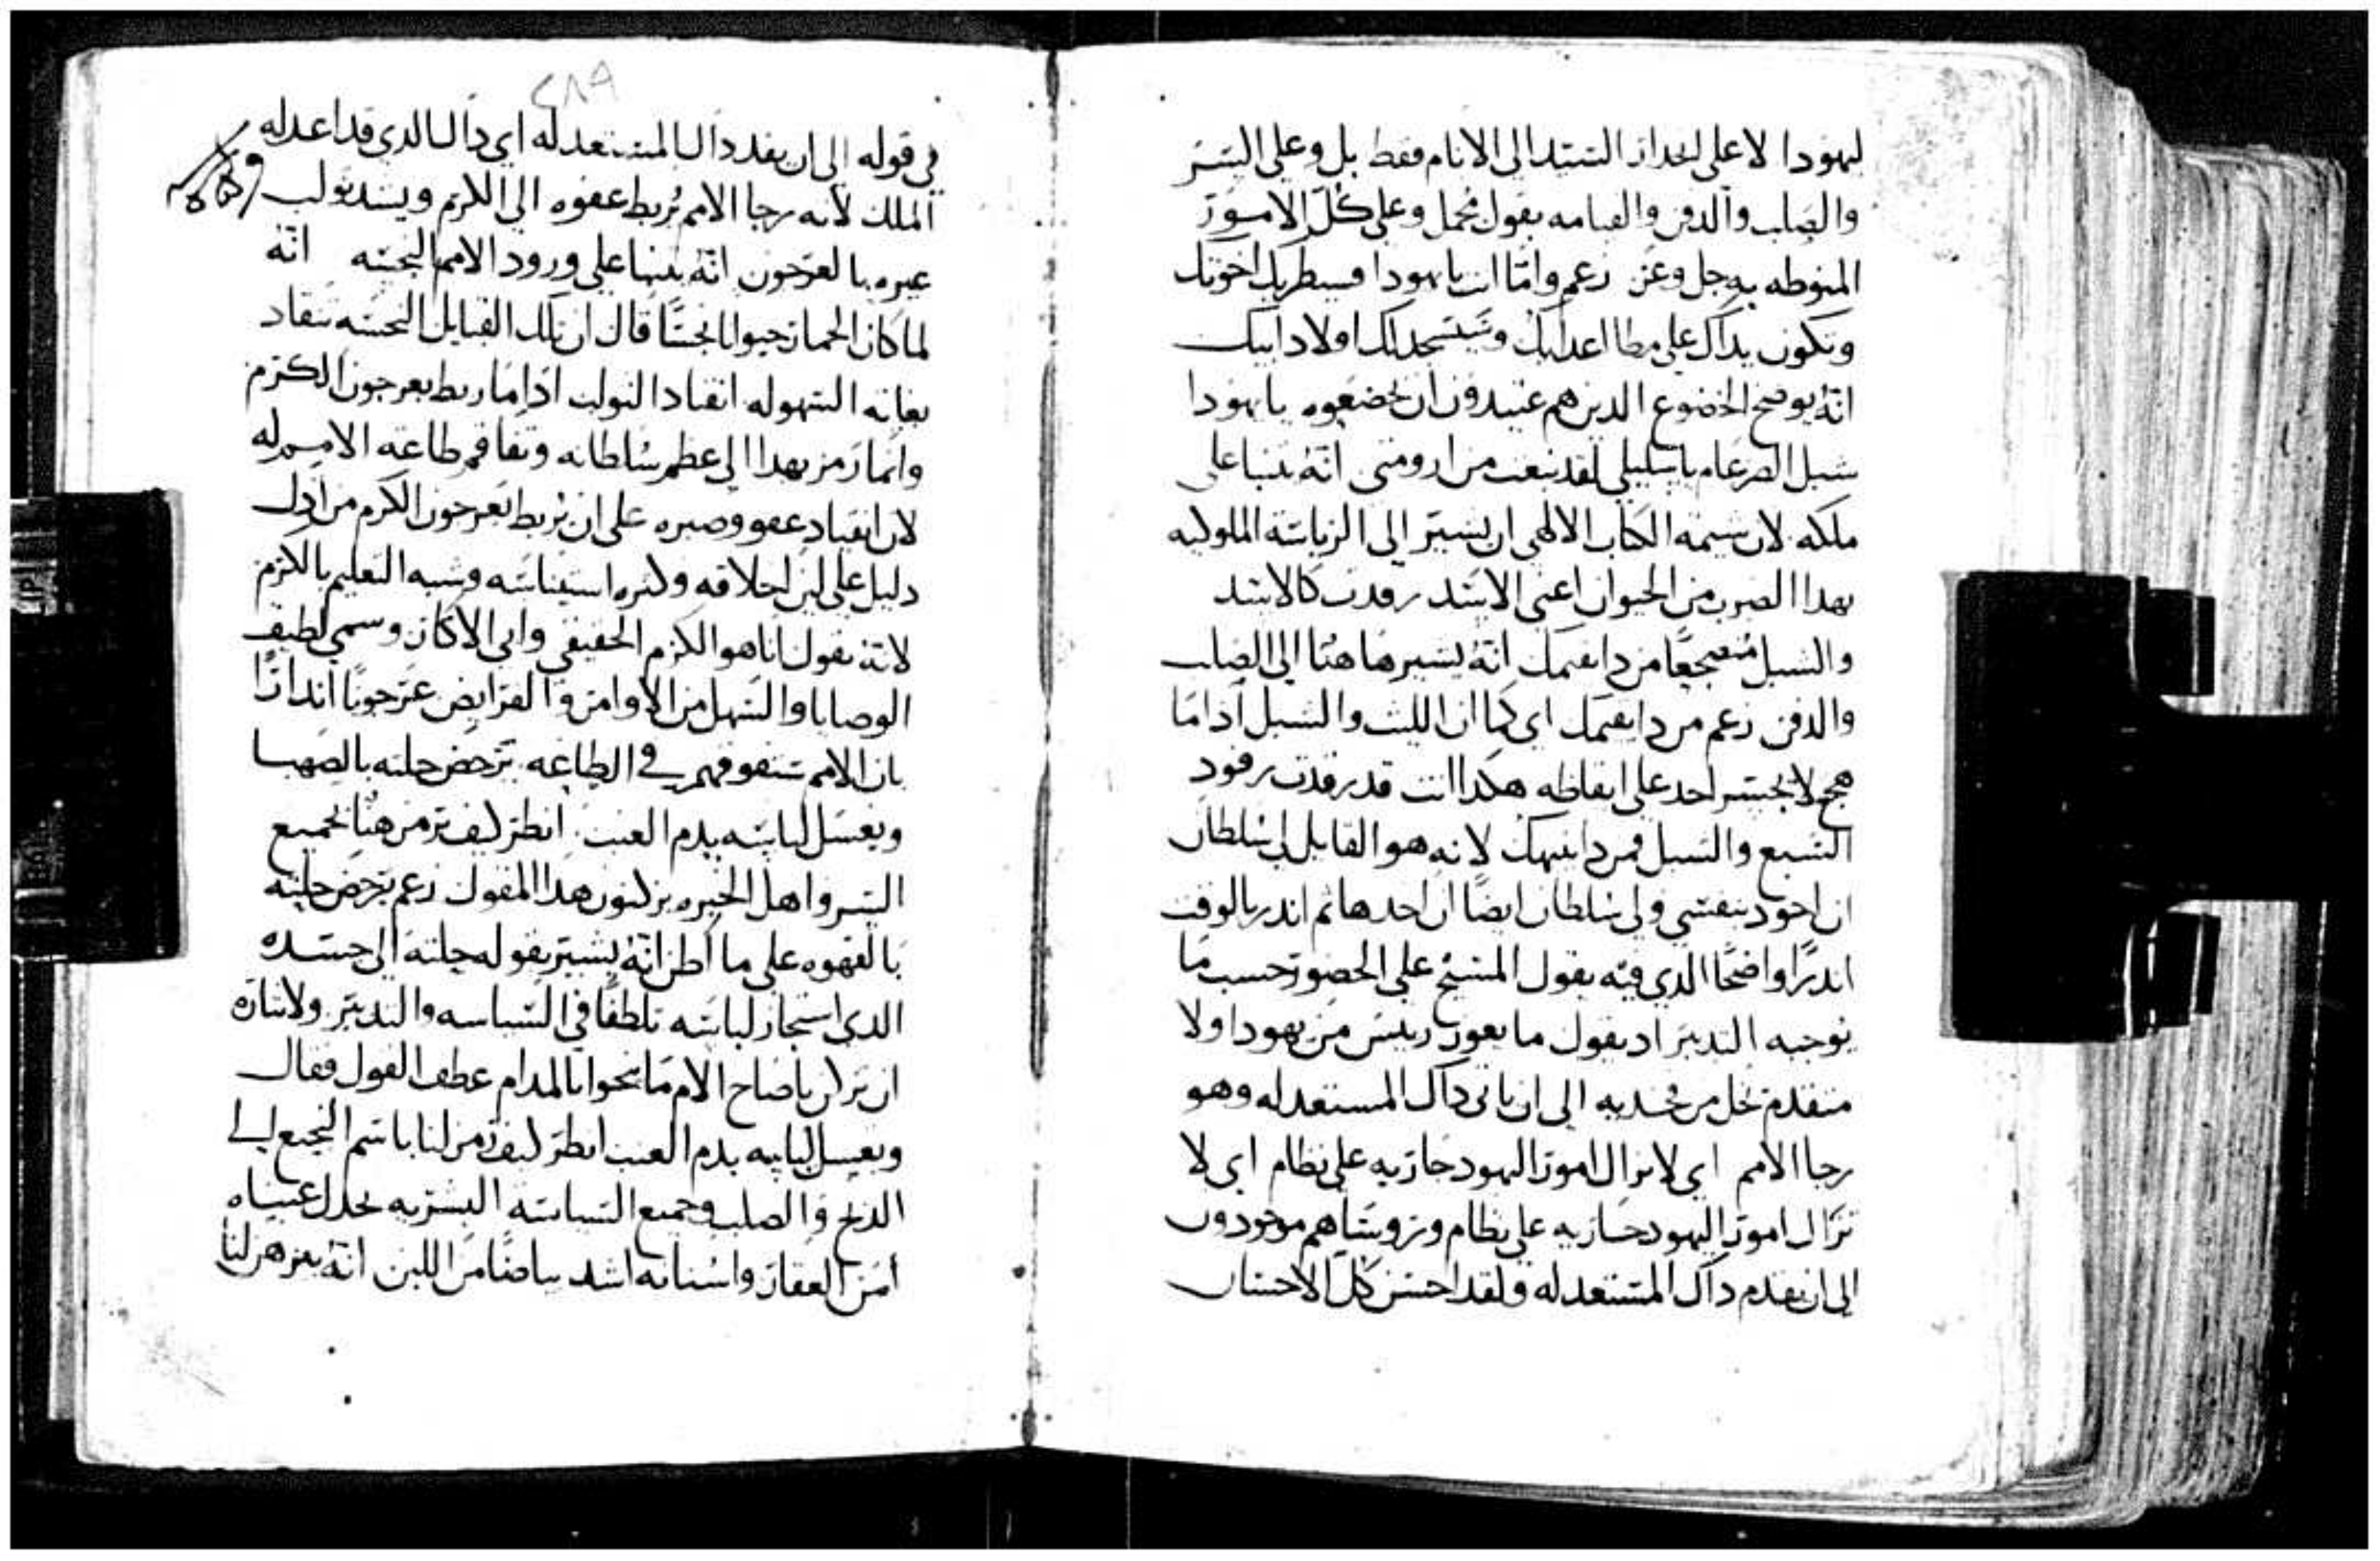 ليهودا لا على انحدار السيد الى الانام فقط بل وعلى السر
والصلب والدفن والقيامه بقول مجمل وعلى كل الامور
المنوطه به جل وعز زعم واما انت يا يهودا فسيطريك اخوتك
وتكون يداك على مطا اعدايك وسيسجد لك اولاد ابيك
انه يوضح الخضوع الدين هم عتيدون ان يخضعوه يا يهودا
شبل الضرغام يا سليلي لقد نبغت من ارومتي انه يتنبا على
ملكه لان شيمة الكتاب الالهي ان يشير الى الرياسه الملوكيه
بهدا الضرب من الحيوان اعني الاسد رقدت كالاسد
والشبل مضجعًا من دا يقيمك انه يشير هاهنا الى الصلب
والدفن زعم من دا يقيمك اي كما ان الليث والشبل ادا ما
هجع لا يجسر احد على ايقاظه هكدا انت قد رقدت رقود
السبع والشبل فمن دا ينبهك لانه هو القايل لي سلطان
ان اجود بنفسي ولي سلطان ايضا ان احدها ثم اندر بالوقت
اندرًا واضحًا الدي فيه يقول المسيح على الحضور حسب ما
يوجبه التدبير اد يقول ما يعوز رييس من يهودا ولا
متقدم نجل من فخديه الى ان ياتي داك المستعد له وهو
رجا الامم اي لا يزال امور اليهود جاريه على نظام اي لا
تزال امور اليهود جاريه على نظام وروساهم موجودون
الى ان يقدم داك المستعد له ولقد احسن كل الاحسان
٢٨٩
في قوله الى ان يفد داك المستعد له اي داك الدي قد اعد له
الملك لانه رجا الامم يربط عفوه الى الكرم ويشد تولب
عيره بالعرجون انه يتنبا على ورود الامم النجسه انه
لما كان الحمار حيوانا نجسًا قال ان تلك القبايل النجسه تنقاد
بغاية السهوله انقياد التولب ادا ما ربط بعرجون الكرم
وانما رمز بهدا الى عظم سلطانه وتفاقم طاعة الامم له
لان انقياد عفو وصبره على ان يربط بعرجون الكرم من ادل
دليل على لين اخلاقه وكثرة استيناسه وشبه التعليم بالكرم
لانه يقول انا هو الكرم الحقيقي وابي الاكار وسمى لطيف
الوصايا والسهل من الاوامر والفرايض عرجونًا اندارًا
بان الامم ستقوقهم في الطاعه يرحض حلته بالصهبا
ويغسل لباسه بدم العنب انظر كيف يرمز هنا لجميع
السر واهل الخبره يزكنون هدا المقول زعم يرحض حلته
بالقهوه على ما اظن انه يشير بقوله حلته الى جسده
الدي استجاز لباسه تلطفًا في السياسه والتدبير ولاثاره
ان تزكن يا صاح الام ما نحوا بالمدام عطف القول فقال
ويغسل لبابيه بدم العنب انظر كيف رمز لنا باسم النجيع الى
الدبح والصلب وجميع السياسه البشريه
امن العقار واسنانه اشد بياضًا من اللبن انه يرمز لنا